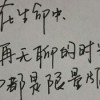 在生命中
再无聊的时光
都是限量版